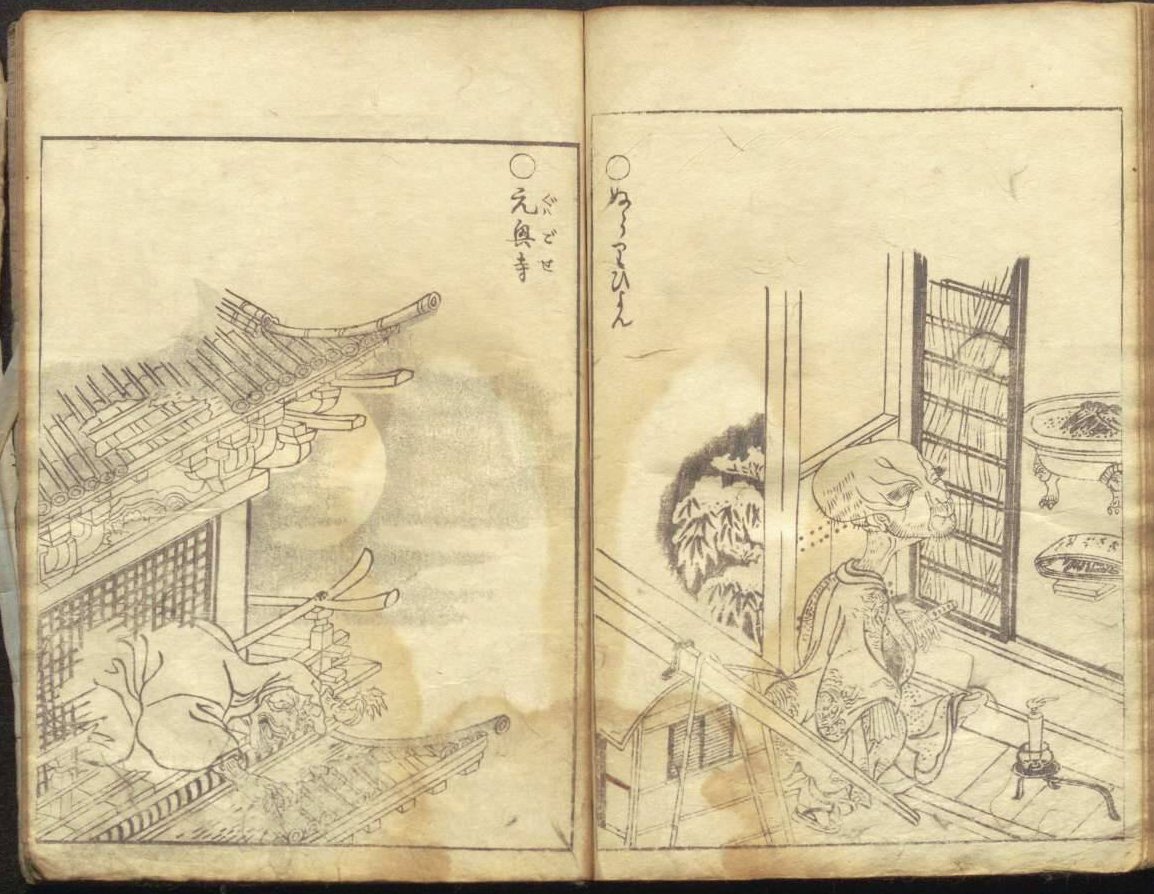 ○ぬらりひよん
○元興寺
ぐはごぜ